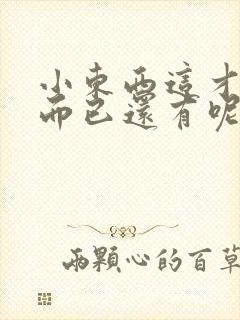 小東西這才
而已還有呢
兩顆心的百草